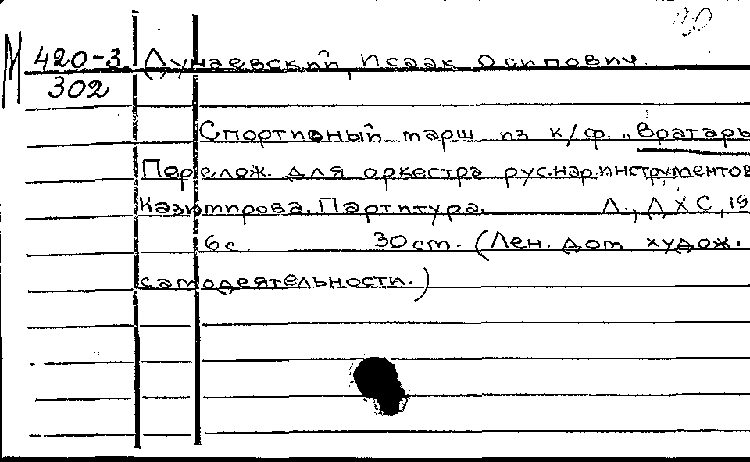 М 420-3 Дунаевский, Исаак Осипович.
302
Спортивный марш из к/ф. „Вратарь
Перелож. для оркестра рус.нар.инструментов
Казимирова. Партитура. Л., ДХС, 19
6 с. 30 см. (Лен. дом худож.
самодеятельности.)